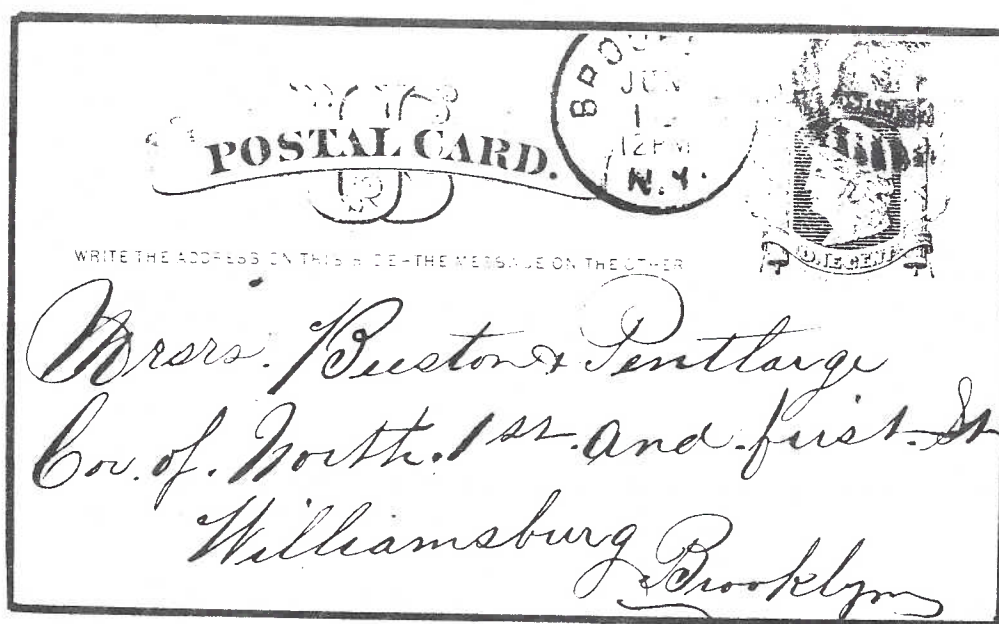 POSTAL CARD.
BROOK
JUN
12 PM
N.Y.
ONE CENT
WRITE THE ADDRESS ON THIS SIDE - THE MESSAGE ON THE OTHER
Mrsrs. Beeston & Pentlarge
Cor. of. North. 1st. and first. St
Williamsburg
Brooklyn